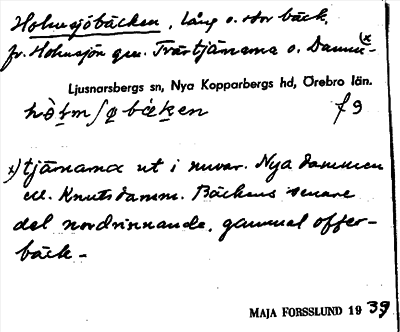 Holmsjöbäcken, lång o. stor bäck,
fr. Holmsjön gm. Tvärtjärnarna o. Damm- x)
Ljusnarsbergs sn, Nya Kopparbergs hd, Örebro län.
f 9
x) tjärnarna ut i nuvar. Nya dammen
ell. Knutsdamm. Bäckens senare
del nordrinnande, gammal offer-
bäck -
MAJA FORSSLUND 1939